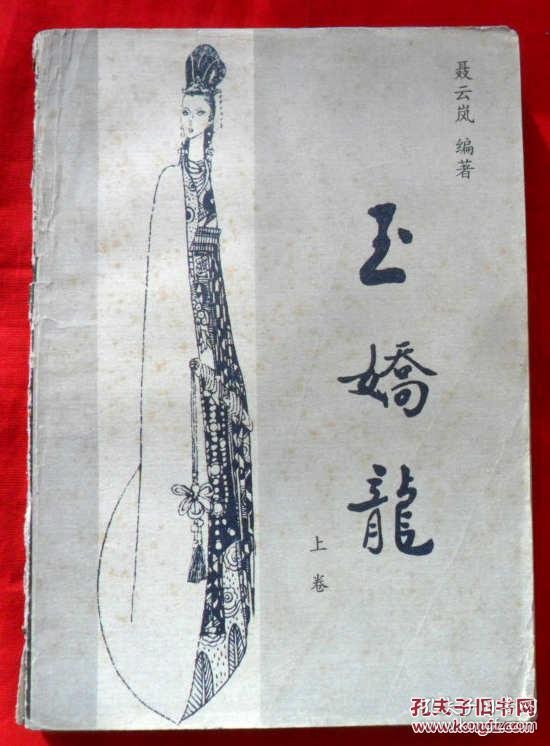 聂云岚 编著
玉嬌龍
上卷
孔夫子旧书网